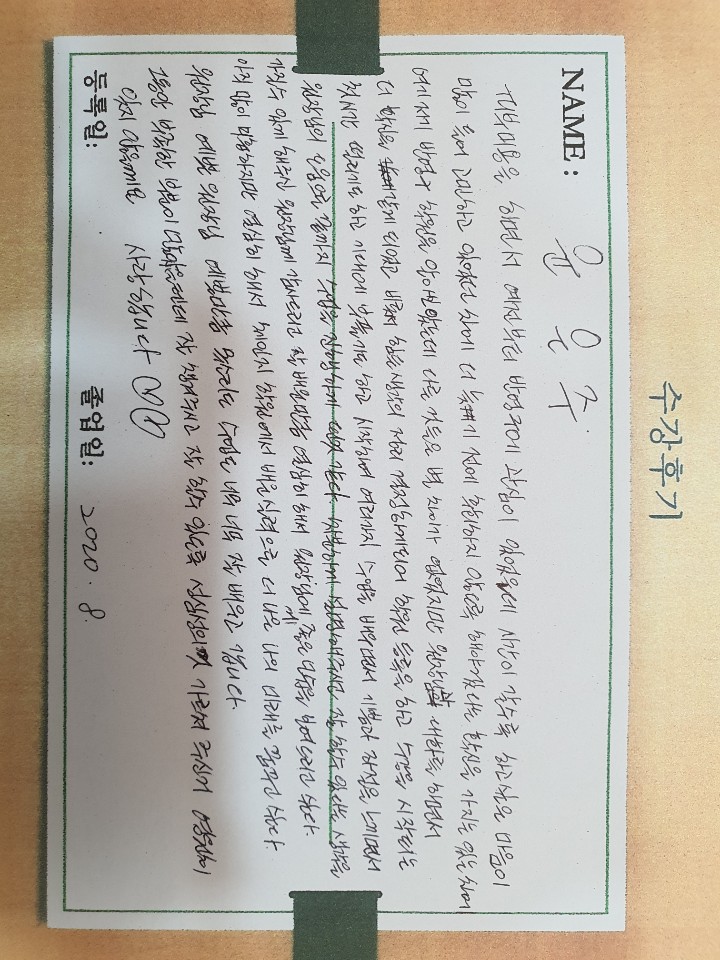 수강후기
NAME : 윤 은 주
피부미용을 하면서 예전부터 반영구에 관심이 있었을데 시간이 갈수록 하고싶은 마음이
많이 들어 고민하고 있었던 찬에 더 늦기 전에 후회하지 않도록 해야겠다는 확신을 가지는 있는 찬에
여기저기 반영구 학원을 알아보았는데 다른 것들은 별 차이가 없었지만 원장님과 대화를 하면서
더 확신을 갖게 되었고 힘든생각의 정리 결정하게되어 학원 등록을 하고 수강을 시작되는
첫시간 떨리기도 하고 기대에 부풀기도 하고 시작하여 여러가지 수업을 배우면서 기쁨과 좌절을 느끼면서
원장님의 도움으로 끝까지 수업을 진행하게 된것 같다. 차분하게 설명해주시고 잘 할수 있다는 생각을
가질수 있게 해주신 원장님께 감사드리고 잘 배운만큼 열심히 해서 원장님에게 좋은 모습을 보여드리고 싶다.
아직 많이 미흡하지만 열심히 해서 제인지 학원에서 배운실력으로 더 나은 나의 미래를 꿈꾸고 싶다.
원장님 예쁜 원장님 예쁜만큼 목소리도 수업도 너무 너무 잘 배우고 갑니다.
그동안 부족한 부분이 많았을텐데 잘 챙겨주시고 잘 할수 있도록 성심성의껏 가르쳐 주신거 영원히
잊지 않을께요 사랑합니다 ♡♡
등록일: 졸업일: 2020. 8.